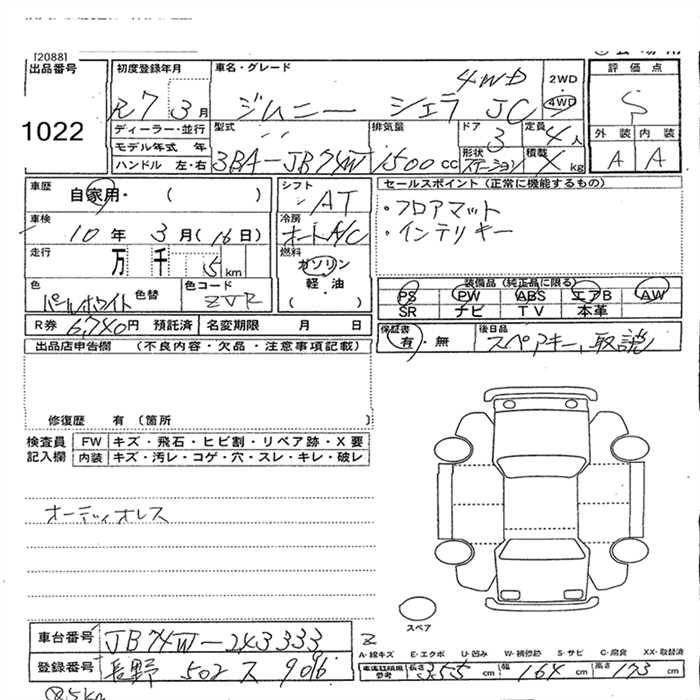 [2088]
出品番号
1022
初度登録年月
R7 3月
車名・グレード
ジムニー シエラ JC 4WD
2WD
4WD
評価点
S
ディーラー・並行
モデル年式 年
ハンドル 左・右
型式
3BA-JB74W
排気量
1500 cc
ドア
3
形状
ステーション
定員
4人
積載
X kg
外装 内装
A A
車歴
自家用・( )
シフト
AT
車検
10年 3月(16日)
冷房
オートA/C
走行
万 千 5 km
燃料
ガソリン
軽・油
( ・ )
色
パールホワイト 色替
色コード
ZVR
R券 6,740円 預託済
名変期限 月 日
セールスポイント (正常に機能するもの)
・フロアマット
・インテリキー
装備品 (純正品に限る)
PS PW ABS エアB AW
SR ナビ TV 本革
保証書
有・無
後日品
スペアキー, 取説
出品店申告欄 (不良内容・欠品・注意事項記載)
修復歴 有 〔箇所 〕
検査員
記入欄
FW キズ・飛石・ヒビ割・リペア跡・X要
内装 キズ・汚レ・コゲ・穴・スレ・キレ・破レ
オーディオレス
スペア
車台番号 JB74W-243333
登録番号 長野 502 ス 9096
A-線キズ E-エクボ U-凹み W-補修跡 S-サビ C-腐食 XX-取替済
長さ 355 cm 幅 164 cm 高さ 173 cm